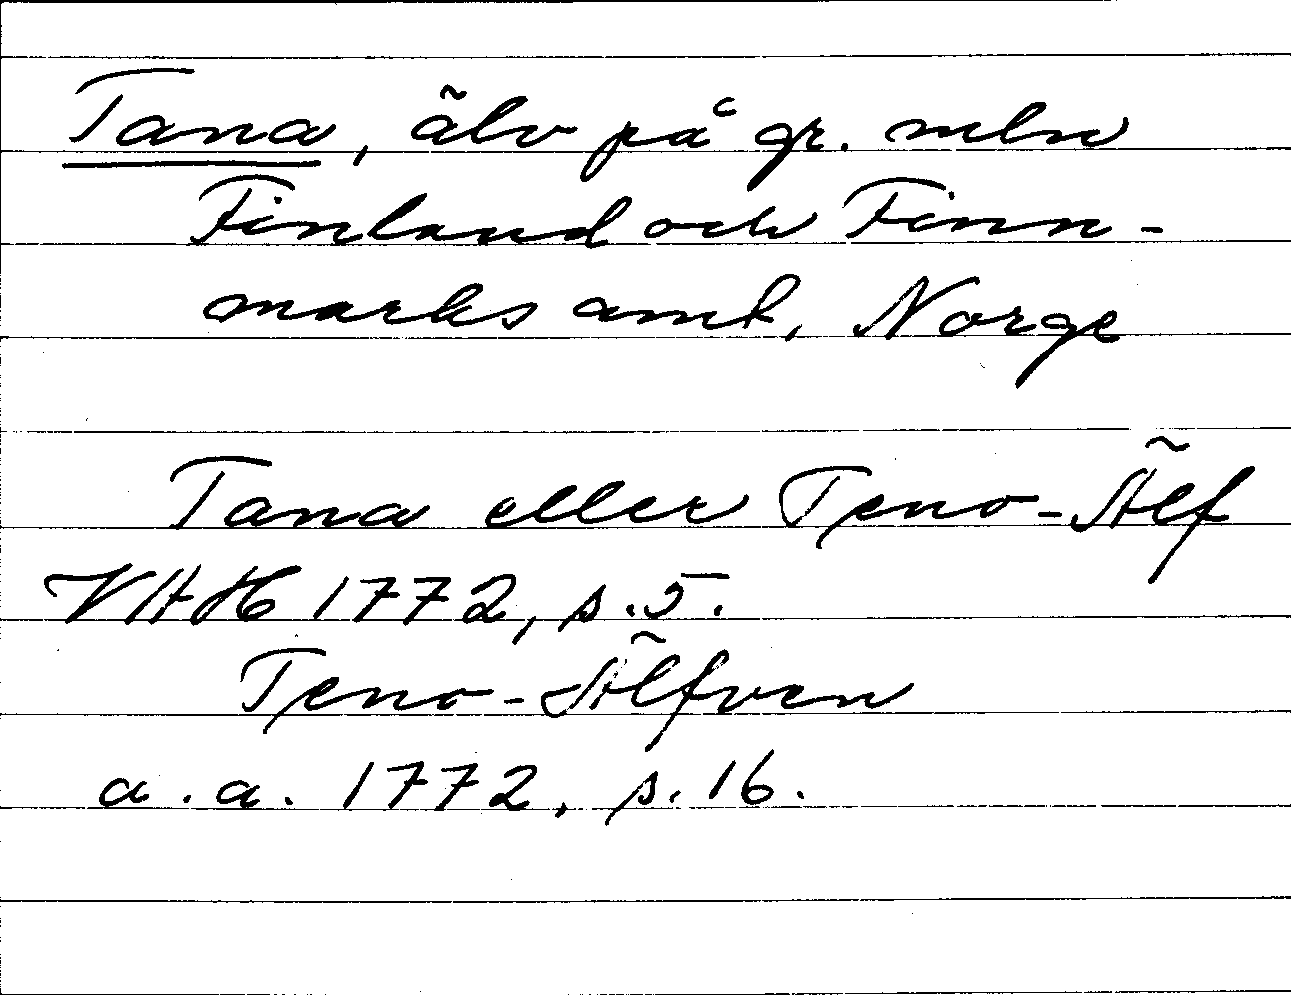 Tana, älv på gr. mln
Finland och Finn-
marks amt, Norge
Tana eller Teno-Älf
VAH 1772, s.5.
Teno-Älfven
a.a. 1772, s.16.